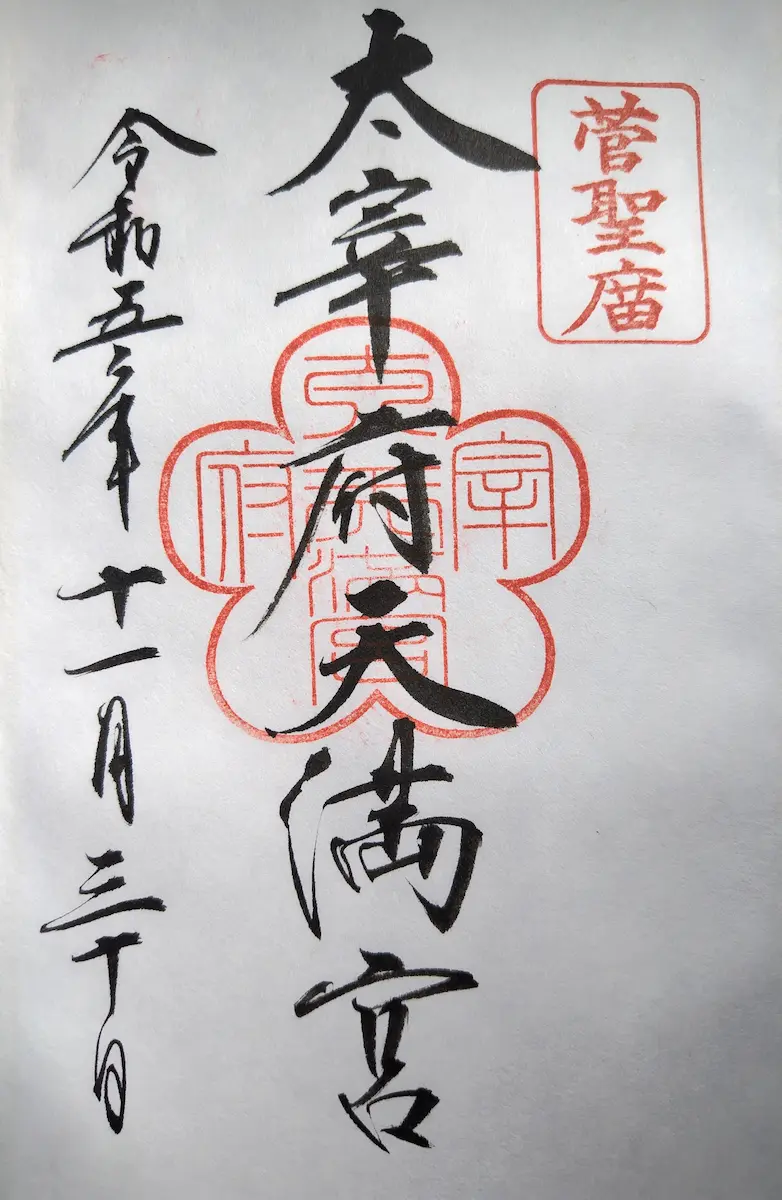 菅聖庿
太宰府天満宮
太宰府天満宮
令和五年十一月三十日